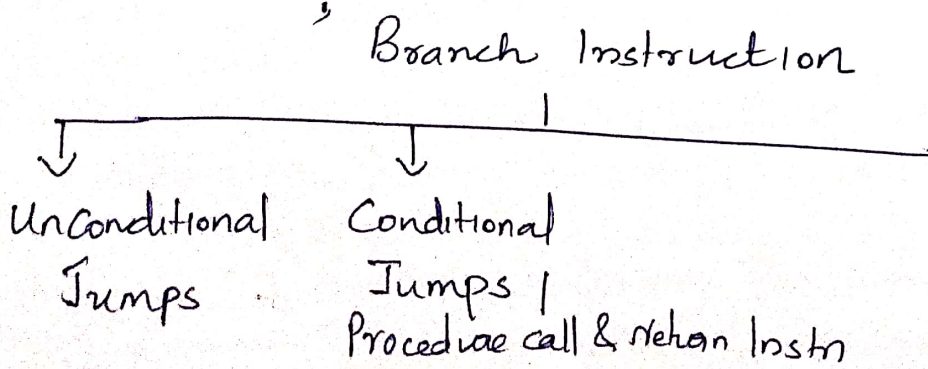 Branch Instruction
Unconditional Conditional
Jumps Jumps |
Procedure call & Return Instn